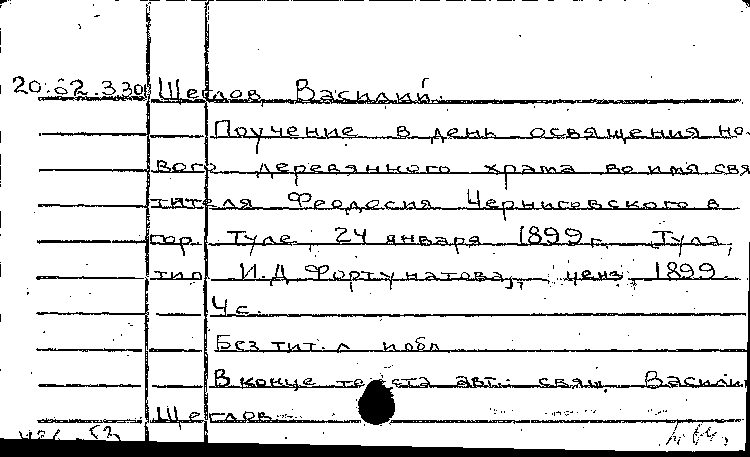 20.62.330 Щеглов, Василий.
Поучение в день освящения но-
вого деревянного храма во имя свя
тителя Феодосия Черниговского в
гор. Туле, 24 января 1899 г. Тула,
тип. И.Д. Фортунатова, ценз. 1899.
4 с.
Без тит. л. и обл.
В конце текста авт.: свящ. Василий
Щеглов.